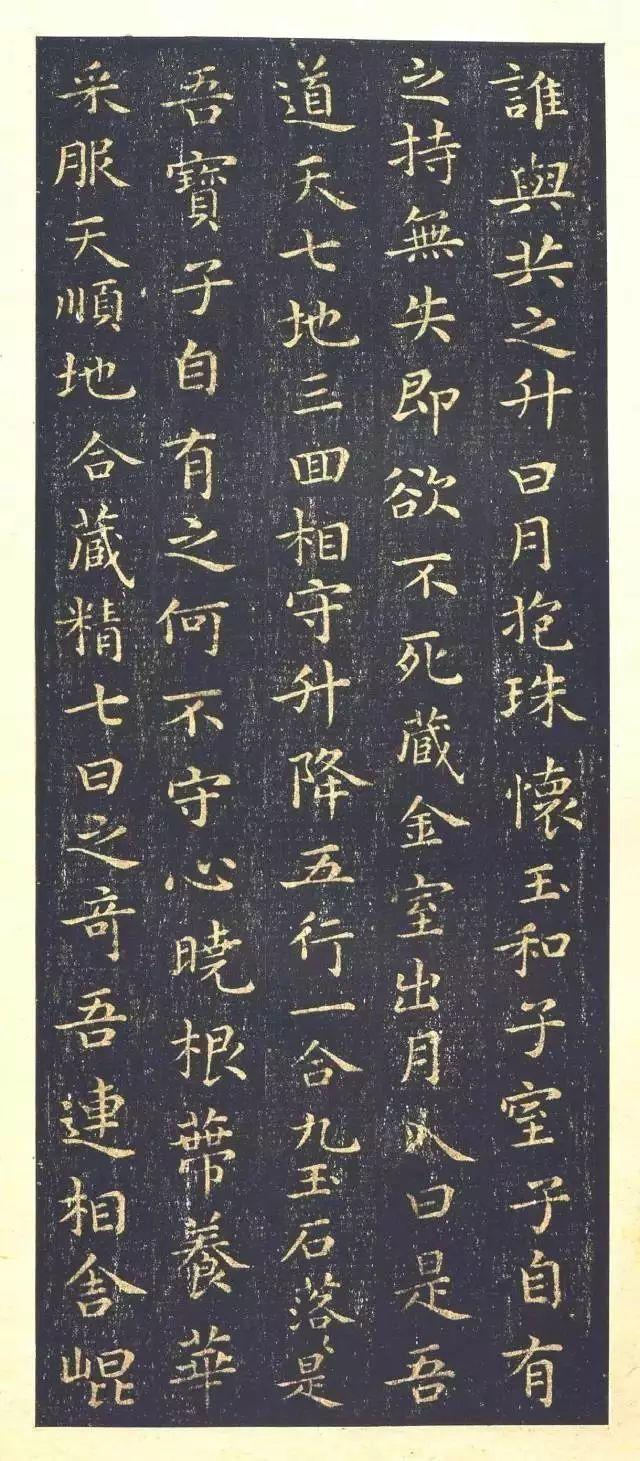 誰與共之升日月抱珠懷玉和子室子自有
之持無失即欲不死藏金室出月入日是吾
道天七地三回相守升降五行一合九玉石落落是
吾寶子自有之何不守心曉根蔕養華
采服天順地合藏精七日之奇吾連相舍崐